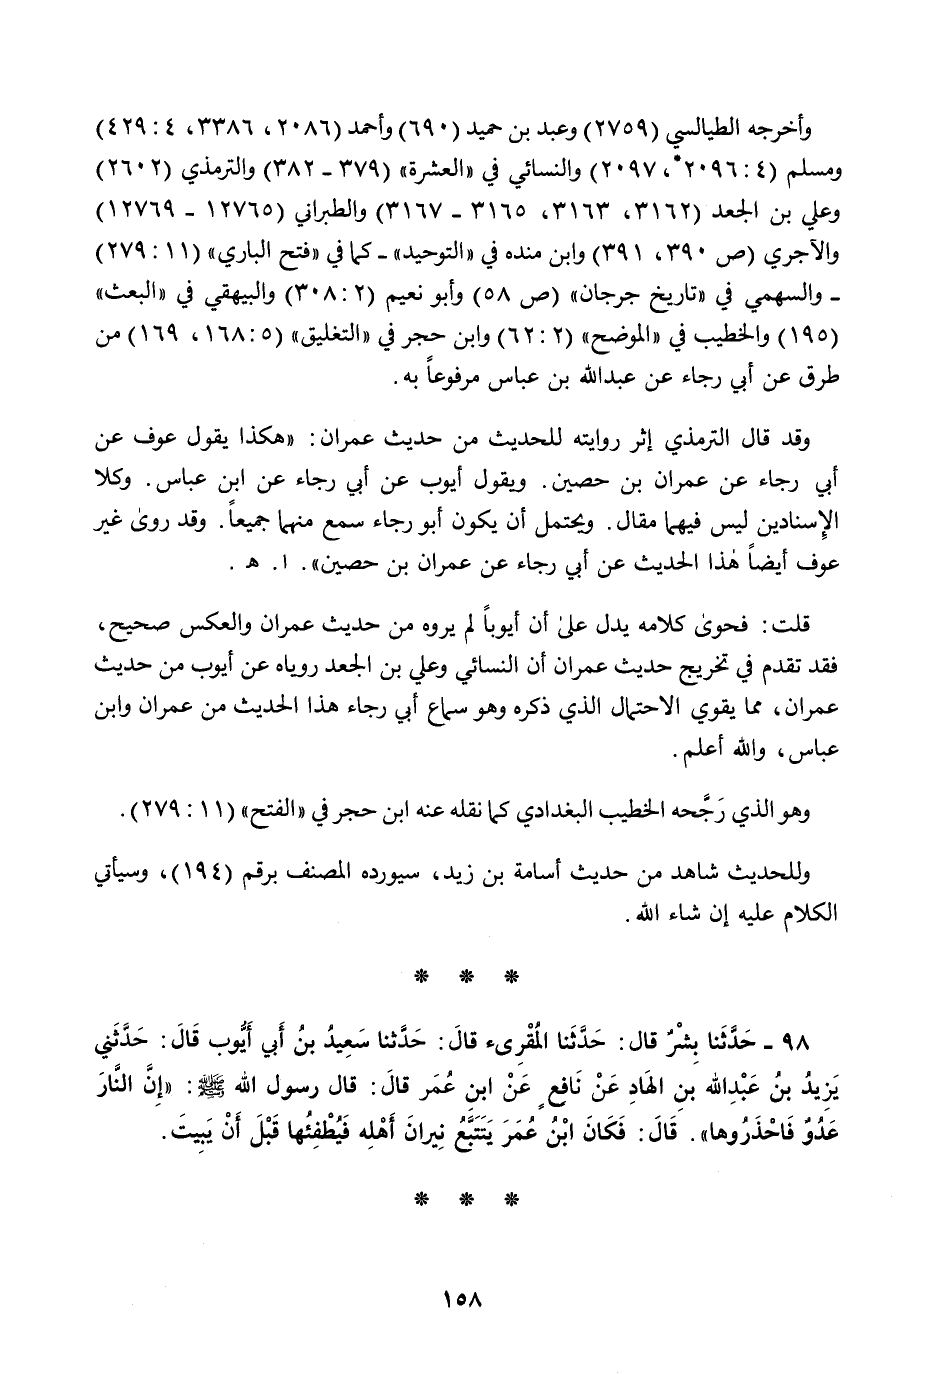 وأخرجه الطيالسي (٢٧٥٩) وعبد بن حميد (٦٩٠) وأحمد (٢٠٨٦، ٣٣٨٦، ٤: ٤٢٩)
ومسلم (٤: ٢٠٩٦*، ٢٠٩٧) والنسائي في «العشرة» (٣٧٩ ـ ٣٨٢) والترمذي (٢٦٠٢)
وعلي بن الجعد (٣١٦٢، ٣١٦٣، ٣١٦٥ ـ ٣١٦٧) والطبراني (١٢٧٦٥ ـ ١٢٧٦٩)
والآجري (ص ٣٩٠، ٣٩١) وابن منده في «التوحيد» ـ كما في «فتح الباري» (١١: ٢٧٩)
ـ والسهمي في «تاريخ جرجان» (ص ٥٨) وأبو نعيم (٢: ٣٠٨) والبيهقي في «البعث»
(١٩٥) والخطيب في «الموضح» (٢: ٦٢) وابن حجر في «التغليق» (٥: ١٦٨، ١٦٩) من
طرق عن أبي رجاء عن عبدالله بن عباس مرفوعاً به.
وقد قال الترمذي إثر روايته للحديث من حديث عمران: «هكذا يقول عوف عن
أبي رجاء عن عمران بن حصين. ويقول أيوب عن أبي رجاء عن ابن عباس. وكلا
الإسنادين ليس فيهما مقال. ويحتمل أن يكون أبو رجاء سمع منهما جميعاً. وقد روىٰ غير
عوف أيضاً هٰذا الحديث عن أبي رجاء عن عمران بن حصين». ا. هـ.
قلت: فحوىٰ كلامه يدل علىٰ أن أيوباً لم يروه من حديث عمران والعكس صحيح،
فقد تقدم في تخريج حديث عمران أن النسائي وعلي بن الجعد روياه عن أيوب من حديث
عمران، مما يقوي الاحتمال الذي ذكره وهو سماع أبي رجاء هذا الحديث من عمران وابن
عباس، والله أعلم.
وهو الذي رَجَّحه الخطيب البغدادي كما نقله عنه ابن حجر في «الفتح» (١١: ٢٧٩).
وللحديث شاهد من حديث أسامة بن زيد، سيورده المصنف برقم (١٩٤)، وسيأتي
الكلام عليه إن شاء الله.
* * *
٩٨ ـ حَدَّثَنا بِشْرٌ قال: حَدَّثَنا المُقْرِىء قالَ: حَدَّثنا سَعِيدُ بنُ أَبي أَيُّوب قَالَ: حَدَّثَني
يَزِيدُ بنُ عَبْدِالله بنِ الهَادِ عَنْ نَافعٍ عَنْ ابنِ عُمَر قالَ: قال رسول الله ﷺ: «إِنَّ النَّارَ
عَدُوٌ فَاحْذَرُوها». قَالَ: فَكَانَ ابْنُ عُمَرَ يَتَتَبَّعُ نِيرانَ أَهْلِه فَيُطْفِئُها قَبْلَ أَنْ يَبِيتَ.
* * *
١٥٨